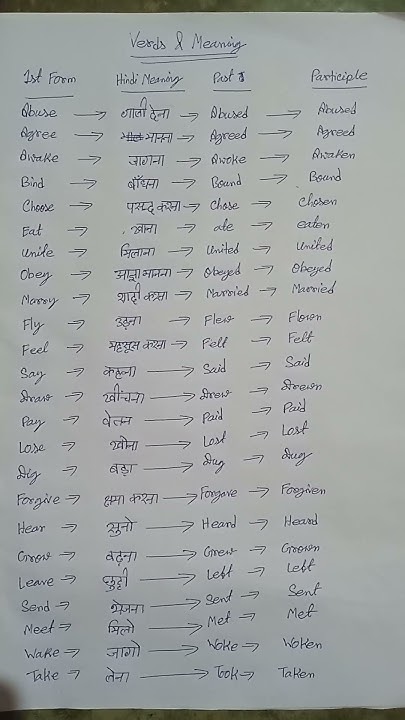 Verbs & Meaning
1st Form Hindi Meaning Past Participle
Abuse → गाली देना → Abused → Abused
Agree → मानना → Agreed → Agreed
Awake → जागना → Awoke → Awaken
Bind → बाँधना → Bound → Bound
Choose → पसन्द करना → Chose → Chosen
Eat → खाना → ate → eaten
Unite → मिलाना → United → United
Obey → आज्ञा मानना → Obeyed → Obeyed
Marry → शादी करना → Married → Married
Fly → उड़ना → Flew → Flown
Feel → महसूस करना → Felt → Felt
Say → कहना → Said → Said
Draw → खींचना → Drew → Drewn
Pay → वेतन → Paid → Paid
Lose → खोना → Lost → Lost
Dig → → Dug → Dug
Forgive → क्षमा करना → Forgave → Forgiven
Hear → सुनो → Heard → Heard
Grow → बढ़ना → Grew → Grown
Leave → छुट्टी → Left → Left
Send → भेजना → Sent → Sent
Meet → मिलो → Met → Met
Wake → जागो → Woke → Woken
Take → लेना → Took → Taken